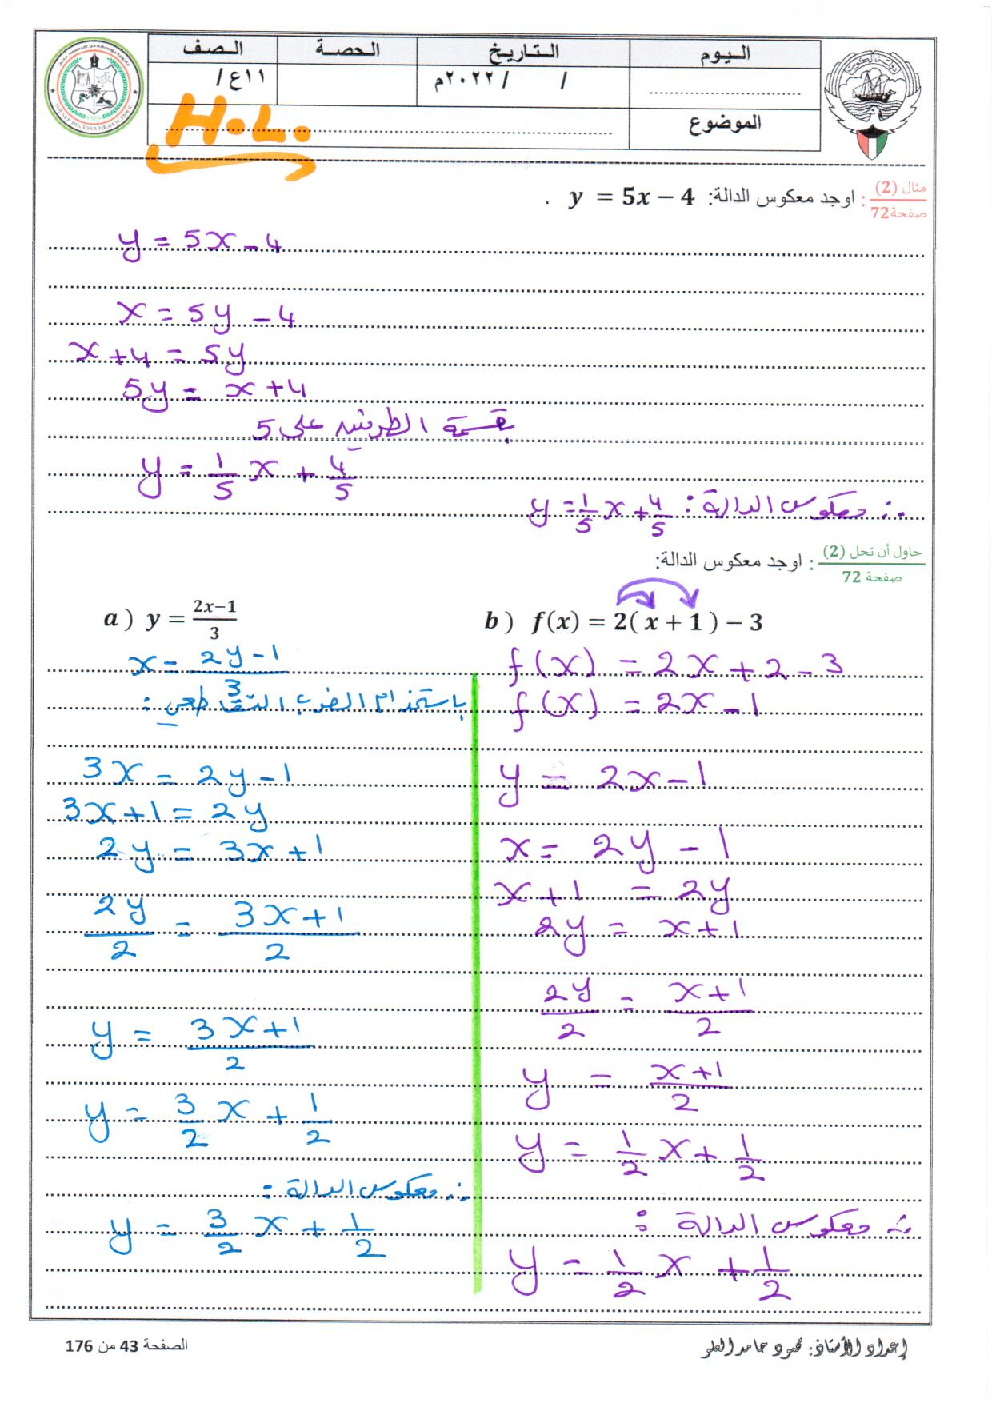 اليوم التاريخ الحصة الصف
/ / ٢٠٢٢م ١١ع /
الموضوع H.L.
مثال (2) صفحة 72 : اوجد معكوس الدالة: y = 5x − 4 .
y = 5x - 4
x = 5y - 4
x + 4 = 5y
5y = x + 4
بقسمة الطرفين على 5
y = 1/5 x + 4/5
∴ معكوس الدالة: y = 1/5 x + 4/5
حاول أن تحل (2) صفحة 72 : اوجد معكوس الدالة:
a ) y = 2x−1/3
x = 2y - 1/3
باستخدام الضرب التقاطعي:
3x = 2y - 1
3x + 1 = 2y
2y = 3x + 1
2y/2 = 3x + 1/2
y = 3x + 1/2
y = 3/2 x + 1/2
∴ معكوس الدالة:
y = 3/2 x + 1/2
b ) f(x) = 2( x + 1 ) − 3
f(x) = 2x + 2 - 3
f(x) = 2x - 1
y = 2x - 1
x = 2y - 1
x + 1 = 2y
2y = x + 1
2y/2 = x + 1/2
y = x + 1/2
y = 1/2 x + 1/2
∴ معكوس الدالة:
y = 1/2 x + 1/2
إعداد الأستاذ: محمود حامد العلو
الصفحة 43 من 176